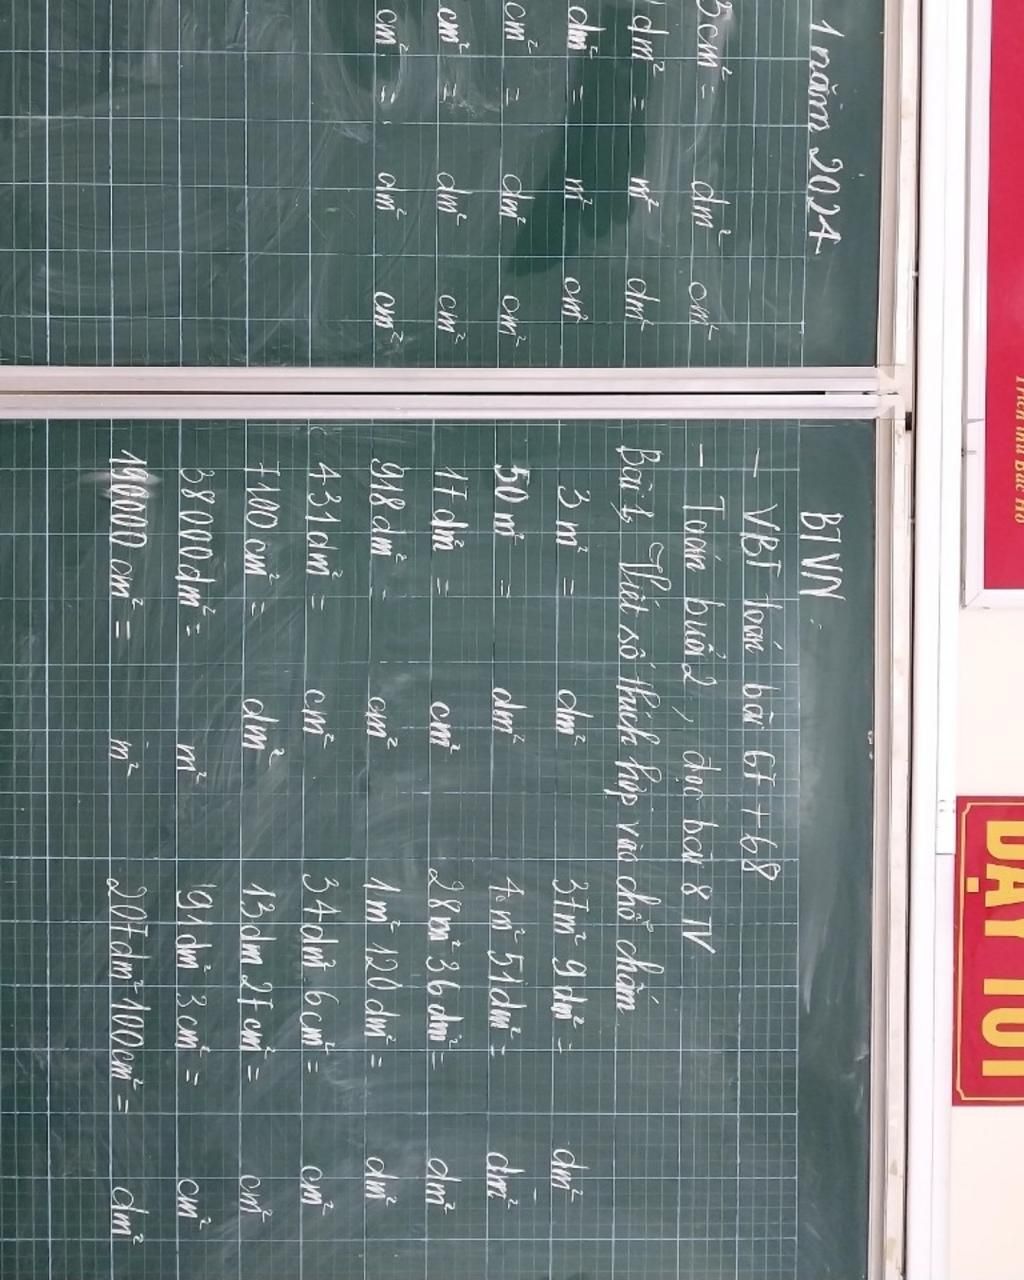 1 năm 2024
5cm² = dm² cm²
dm² = m² dm²
dm² = m² cm²
cm² = dm² cm²
cm² = dm² cm²
cm² = dm² cm²
BTVN
- VBT toán bài 67 + 68
- Toán buổi 2, đọc bài 8 TV
Bài 1, Viết số thích hợp vào chỗ chấm
3 m² = dm² 37m² 9dm² = dm²
50 m² = dm² 4 m² 51dm² = dm²
17 dm² = cm² 28m² 36dm² = dm²
918dm² = cm² 1m² 120dm² = dm²
431dm² = cm² 34dm² 6cm² = cm²
7100cm² = dm² 13dm 27cm² = cm²
38000dm² = m² 91dm² 3cm² = cm²
190000cm² = m² 207dm² 100cm² = dm²
DẠY TỐT